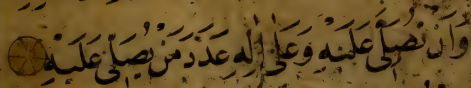 وَأَنْ تُصَلِّيَ عَلَيْهِ وَعَلَى اٰلِهِ عَدَدَ مَنْ يُصَلِّى عَلَيْهِ